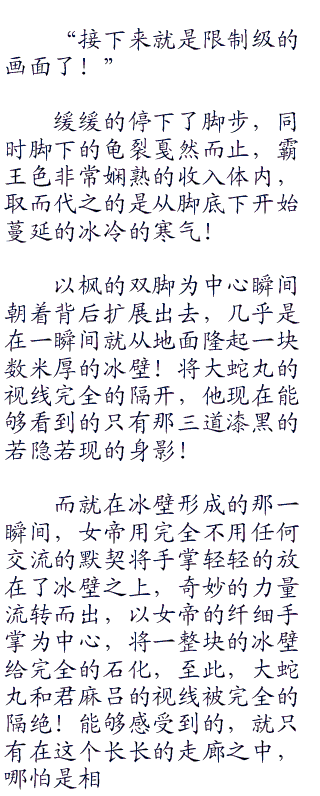 “接下来就是限制级的
画面了！”
缓缓的停下了脚步，同
时脚下的龟裂戛然而止，霸
王色非常娴熟的收入体内，
取而代之的是从脚底下开始
蔓延的冰冷的寒气！
以枫的双脚为中心瞬间
朝着背后扩展出去，几乎是
在一瞬间就从地面隆起一块
数米厚的冰壁！将大蛇丸的
视线完全的隔开，他现在能
够看到的只有那三道漆黑的
若隐若现的身影！
而就在冰壁形成的那一
瞬间，女帝用完全不用任何
交流的默契将手掌轻轻的放
在了冰壁之上，奇妙的力量
流转而出，以女帝的纤细手
掌为中心，将一整块的冰壁
给完全的石化，至此，大蛇
丸和君麻吕的视线被完全的
隔绝！能够感受到的，就只
有在这个长长的走廊之中，
哪怕是相